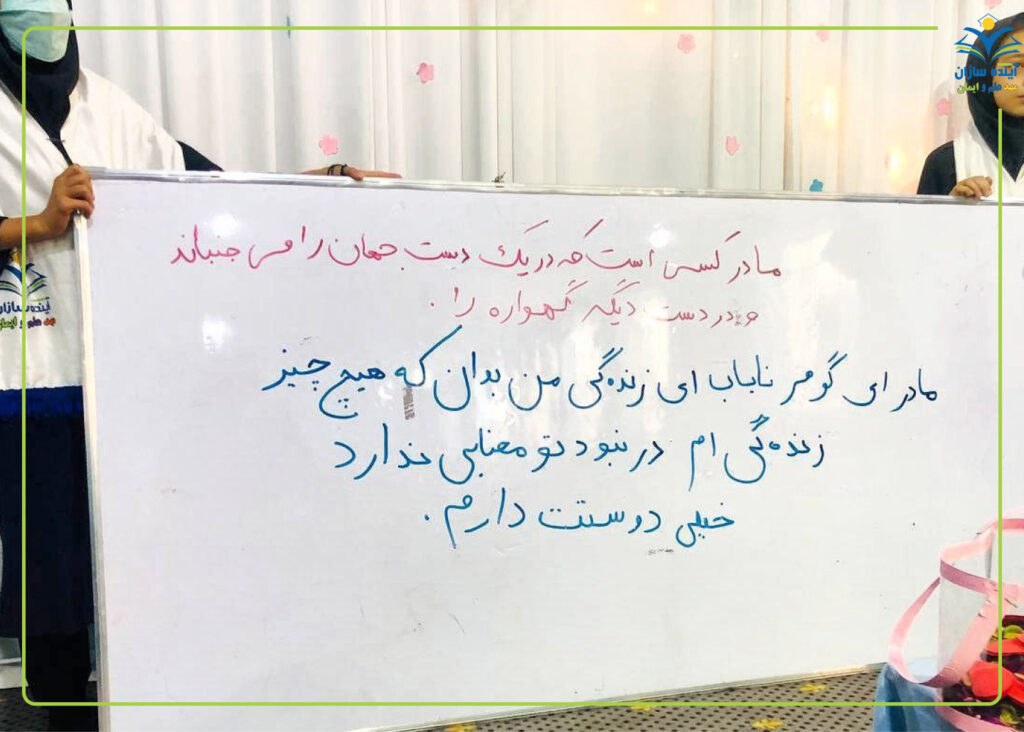 آینده سازان
مهد علم و ایمان
مادر کسی است که در یک دست جهان را می جنباند
و در دست دیگر گهواره را.
مادر ای گوهر نایاب ای زندگی من بدان که هیچ چیز
زندگی ام در نبود تو معنایی ندارد
خیلی دوستت دارم.
آینده سازان
مهد علم و ایمان